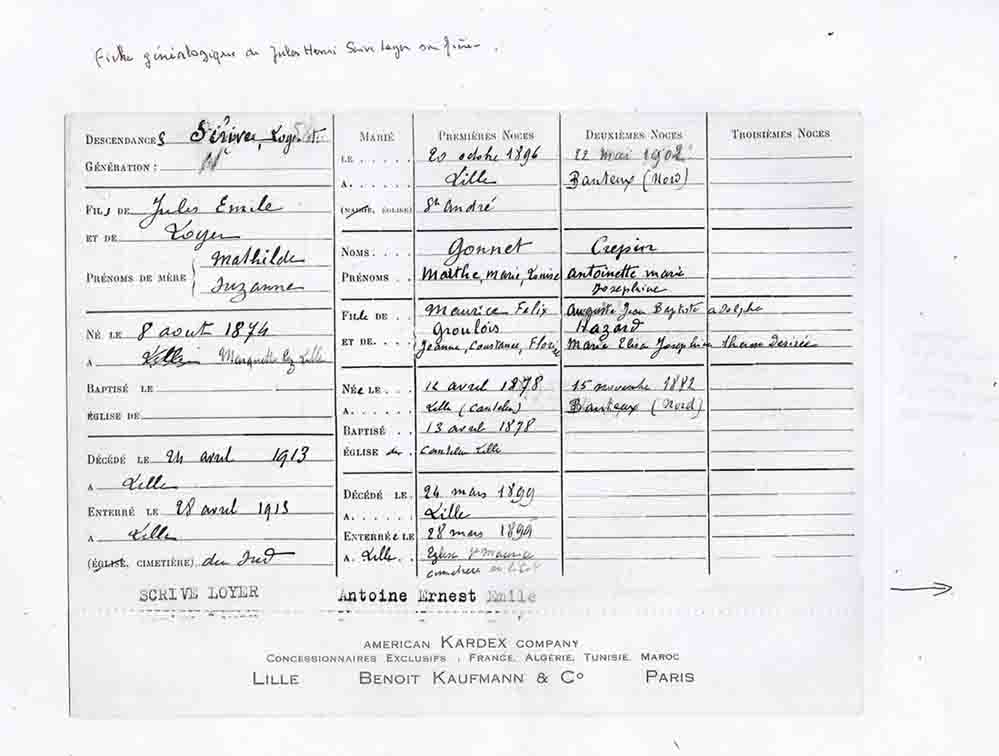 Fiche généalogique de Jules Henri Scrive Loyer son frère.
DESCENDANCES Scrive, Loyer
GÉNÉRATION :
FILS DE Jules Emile
ET DE Loyer
PRÉNOMS DE MÈRE Mathilde
Suzanne
NÉ LE 8 aout 1874
A Lille Marquette lez Lille
BAPTISÉ LE
ÉGLISE DE
DÉCÉDÉ LE 24 avril 1913
A Lille
ENTERRÉ LE 28 avril 1913
A Lille
(ÉGLISE, CIMETIÈRE) du Sud
MARIÉ PREMIÈRES NOCES DEUXIÈMES NOCES TROISIÈMES NOCES
LE . . . . . 20 octobre 1896 22 mai 1902
A . . . . . . Lille Banteux (Nord)
(MAIRIE, ÉGLISE) St André
NOMS . . . . Gonnet Crepin
PRÉNOMS . . . Marthe, Marie, Louise Antoinette Marie
Josephine
FILLE DE . . Maurice Felix Auguste Jean Baptiste Adolphe
Groulois Hazard
ET DE. . . . Jeanne, Constance, Florine Marie Elisa Josephine Desirée
NÉE LE . . . 12 avril 1878 15 novembre 1882
A. . . . . . Lille (Canteleu) Banteux (Nord)
BAPTISÉ . . 13 avril 1878
ÉGLISE de . Canteleu Lille
DÉCÉDÉ LE . 24 mars 1899
A. . . . . . Lille
ENTERRÉE LE 28 mars 1899
A. Lille. . Eglise St Maurice
cimetière
SCRIVE LOYER Antoine Ernest Emile
AMERICAN KARDEX COMPANY
CONCESSIONNAIRES EXCLUSIFS : FRANCE, ALGÉRIE, TUNISIE, MAROC
LILLE BENOIT KAUFMANN & Co PARIS